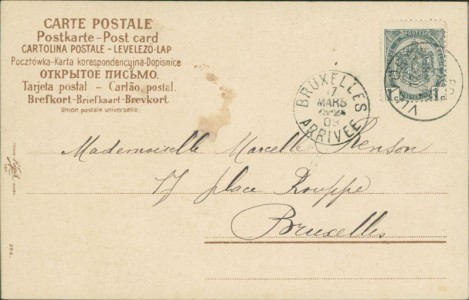 CARTE POSTALE
Postkarte - Post card
CARTOLINA POSTALE - LEVELEZŐ-LAP
Pocztówka - Karta korespondencyjna - Dopisnice
ОТКРЫТОЕ ПИСЬМО.
Tarjeta postal - Cartão postal.
Brefkort - Briefkaart - Brevkort.
Union postale universelle.
BRUXELLES
17
MARS
ARRIVEE
Mademoiselle Marcelle Henson
17 place Rouppe
Bruxelles